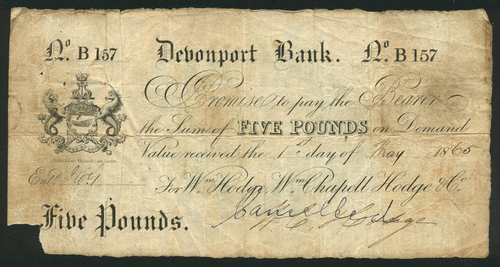 No. B 157 Devonport Bank. No. B 157
Promise to pay the Bearer
the Sum of FIVE POUNDS on Demand
Value received the 1st day of May 1865
Entd.
For Wm. Hodge, Wm. Chapell Hodge & Co.
Five Pounds.